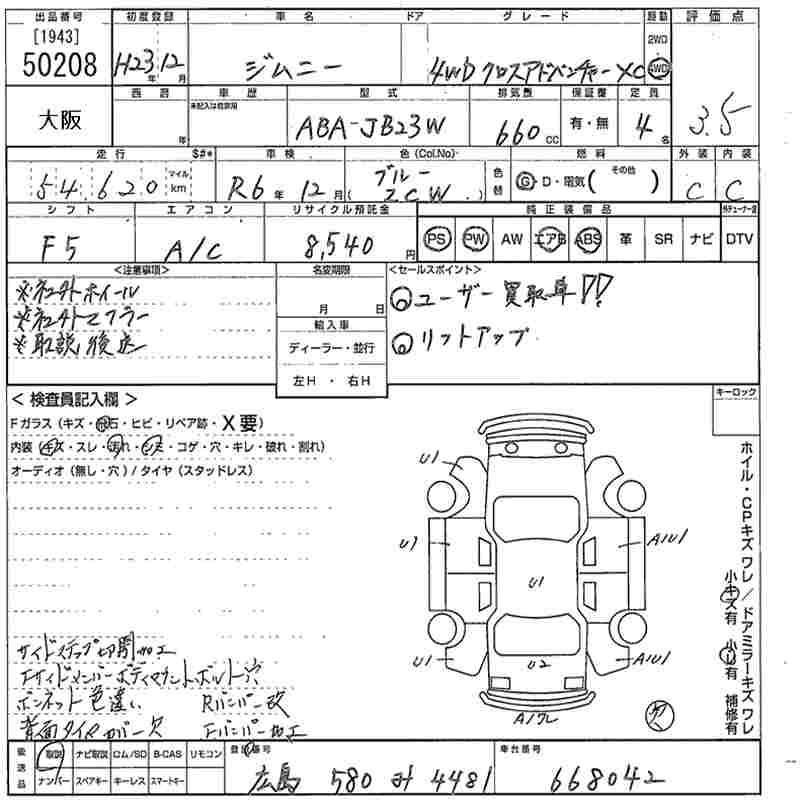 出品番号 初度登録 車名 ドア グレード 駆動 評価点
[1943]
50208 H23年12月 ジムニー 4WD クロスアドベンチャーXC 2WD 4WD 3.5
大阪 西暦 年 車歴 未記入は自家用 型式 ABA-JB23W 排気量 660cc 保証書 有・無 定員 4名
走行 54,620 マイル km $#* 車検 R6年12月 色(Col.No) ブルー ZCW 色替 燃料 G・D・電気( その他 ) 外装 C 内装 C
シフト F5 エアコン A/C リサイクル預託金 8,540円 純正装備品 PS PW AW エアB ABS 革 SR ナビ DTV
<注意事項> 名変期限 <セールスポイント>
※社外ホイール 月 日 ◎ユーザー買取車!!
※社外マフラー 輸入車 ◎リフトアップ
※取説後送 ディーラー・並行
左H・右H
<検査員記入欄> キーロック
Fガラス(キズ・飛石・ヒビ・リペア跡・X要)
内装(キズ・スレ・汚れ・シミ・コゲ・穴・キレ・破れ・割れ)
オーディオ(無し・穴)/タイヤ(スタッドレス)
U1
U1 A1U1
U1
U1 U2 A1U1
A1ワレ
ホイル・CPキズワレ/ドアミラーキズワレ
小キズ有 小U有 補修有
サイドステップ切削加工
Fサイドメンバーボディマウントボルト穴
ボンネット色違い Rバンパー改
背面タイヤカバー欠 Fバンパー加工
後送品 取説 ナビ取説 ロム/SD B-CAS リモコン 登録番号 車台番号
ナンバー スペアキー キーレス スマートキー 広島 580 み 4481 668042